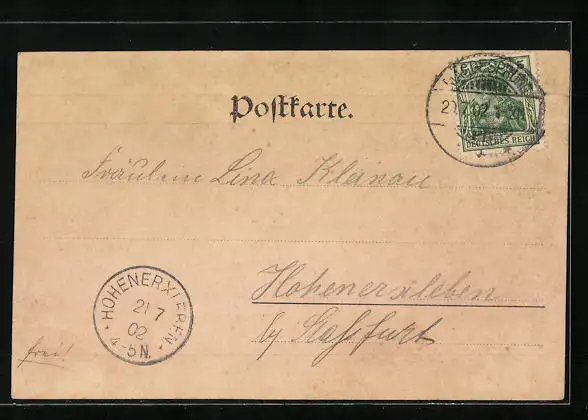 MÄGDESPRUNG
21.7.02
DEUTSCHES REICH
Postkarte.
Fräulein Lina Kleinau
Hohenerxleben
by Stassfurt
HOHENERXLEBEN
21 7
02
4-5N.
frei!